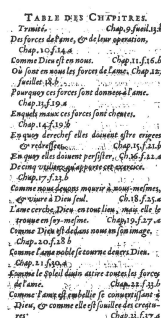 TABLE DES CHAPITRES.
Trinité. Chap.9.fueil.13.b
Des forces de l'ame, & de leur operation,
Chap.10.f.14.a
Comme Dieu est en nous. Chap.11.f.16.b
Où sont en nous les forces de l'ame, Chap.12.
fueillet. 18.b
Pourquoy ces forces sont données à l'ame.
Chap.13.f.19.a
Esquels maux ces forces sont cheutes,
Chap.14.f.19.b
En quoy derechef elles doiuent estre erigees
& redressees. Chap.15.f.21.b
En quoy elles doiuent persister, Ch.16.f.22.a
De cinq apporte cest exercice.
Chap.17.f.23.b
Comme nous deuons mourir à nous-mesmes,
& viure à Dieu seul. Ch.18.f.25.a
L'ame cerche Dieu en tout lieu, mais elle le
trouue en soy-mesme. Chap.19.f.27.a
Comme Dieu est dedans nous en son image,
Chap.20.f.28.b
Comme l'ame noble se tourne deuers Dieu.
Chap.21.f.30.a
Comme le Soleil diuin attire toutes les forces
de l'ame. Chap.22.f.33.b
Comme l'ame est embellie se conuertissant à
Dieu, & comme elle est souillée des creatu-
res